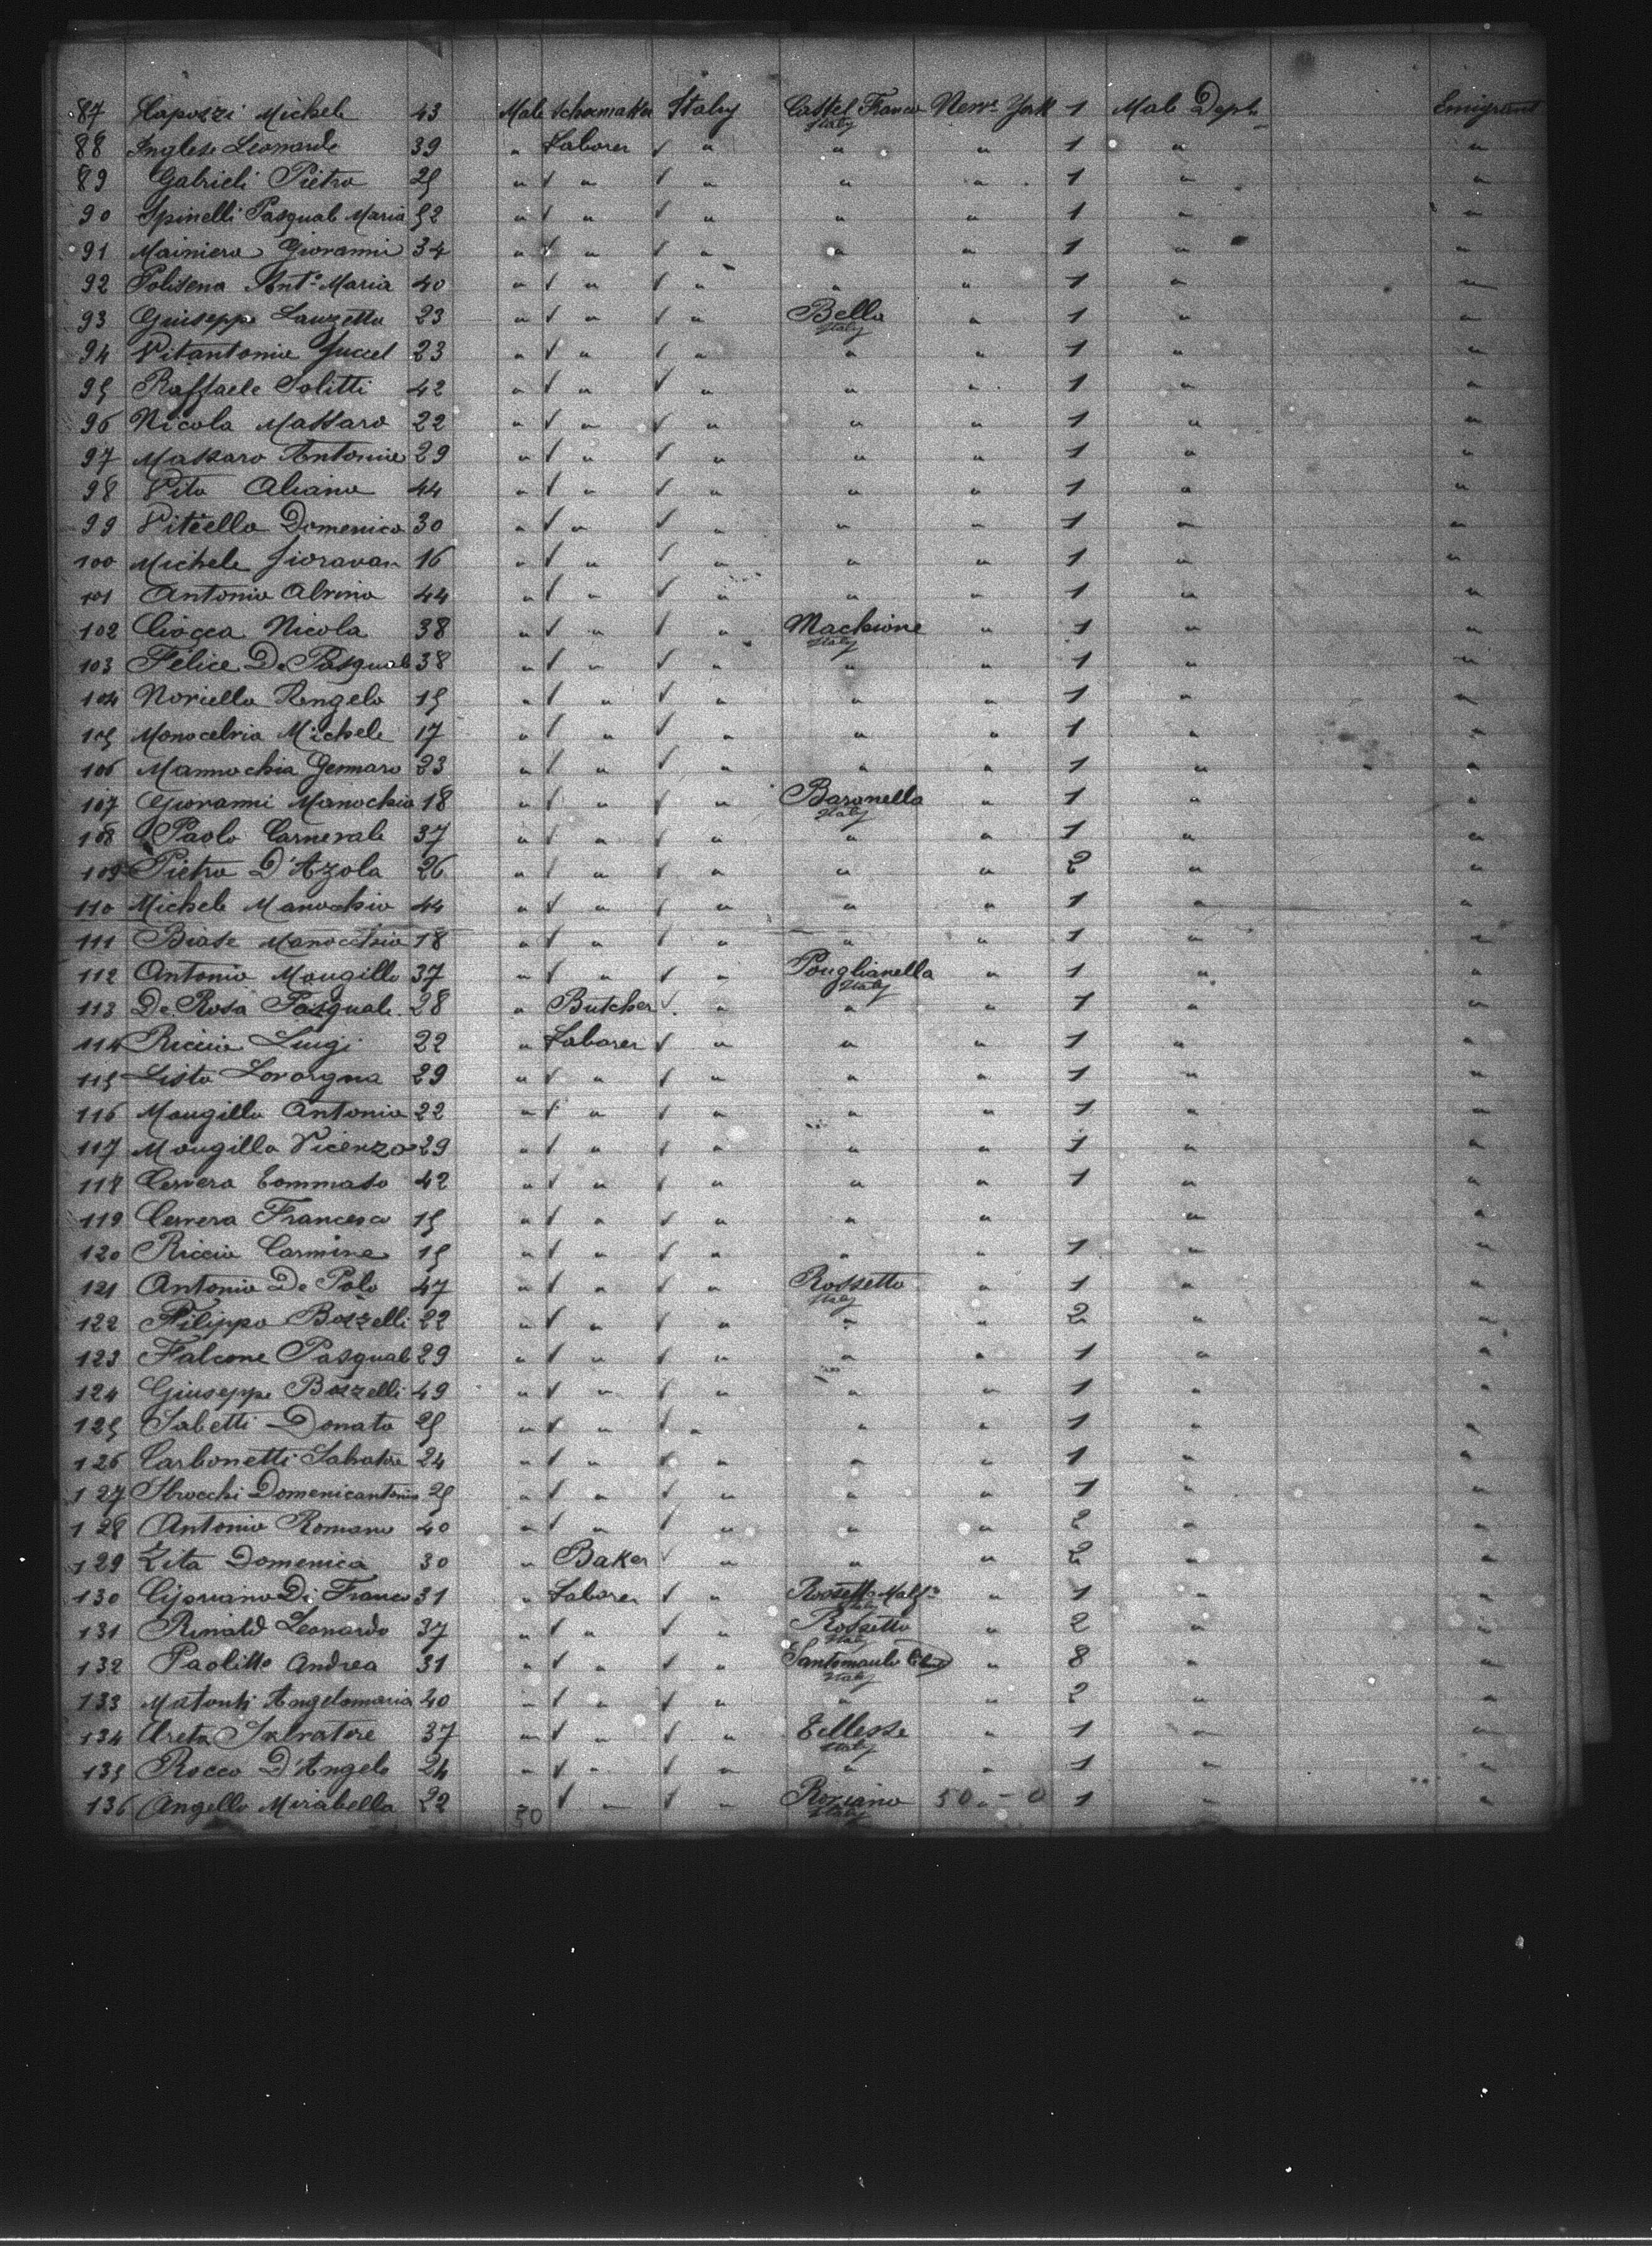 87 Capozzi Michele 43 Male Schoemaker Italy Castel Franco Italy New York 1 Male Dept. Emigrant
88 Inglese Leonardo 39 " Laborer √ " " " 1 " "
89 Gabrieli Pietro 25 " √ " √ " " " 1 " "
90 Spinelli Pasquale Maria 52 " √ " √ " " " 1 " "
91 Mainiero Giovanni 34 " √ " √ " " " 1 " "
92 Polisena Ant° Maria 40 " √ " √ " " " 1 " "
93 Giuseppe Lauzetta 23 " √ " √ " Bella Italy " 1 " "
94 Vitantonio 23 " √ " √ " " " 1 " "
95 Raffaele Solitti 42 " √ " √ " " " 1 " "
96 Nicola Massaro 22 " √ " √ " " " 1 " "
97 Massaro Antonio 29 " √ " √ " " " 1 " "
98 Vito Aliano 44 " √ " √ " " " 1 " "
99 Vitiello Domenico 30 " √ " √ " " " 1 " "
100 Michele Fioravan 16 " √ " √ " " " 1 " "
101 Antonio Alvino 44 " √ " √ " " " 1 " "
102 Ciocca Nicola 38 " √ " √ " Machione Italy " 1 " "
103 Felice De Pasquale 38 " √ " √ " " " 1 " "
104 Noviello Angelo 15 " √ " √ " " " 1 " "
105 Monocelvia Michele 17 " √ " √ " " " 1 " "
106 Mannochia Gennaro 23 " √ " √ " " " 1 " "
107 Giovanni Manochio 18 " √ " √ " Baronella Italy " 1 " "
108 Paolo Carnevale 37 " √ " √ " " " 1 " "
109 Pietro D'Azola 26 " √ " √ " " " 2 " "
110 Michele Manochio 44 " √ " √ " " " 1 " "
111 Biase Manochio 18 " √ " √ " " " 1 " "
112 Antonio Mougillo 37 " √ " √ " Pouglianella Italy " 1 " "
113 De Rosa Pasquale 28 " Butcher √ " " " 1 " "
114 Riccio Luigi 22 " Laborer √ " " " 1 " "
115 Listo Lovorgna 29 " √ " √ " " " 1 " "
116 Mougillo Antonio 22 " √ " √ " " " 1 " "
117 Mougillo Vicenzo 29 " √ " √ " " " 1 " "
118 Cervera Tommaso 42 " √ " √ " " " 1 " "
119 Cervera Francesco 15 " √ " √ " " " " "
120 Riccio Carmine 15 " √ " √ " " " 1 " "
121 Antonio De Polo 47 " √ " √ " Rossetto Italy " 1 " "
122 Filippo Bozzelli 22 " √ " √ " " " 2 " "
123 Falcone Pasquale 29 " √ " √ " " " 1 " "
124 Giuseppe Bozzelli 49 " √ " √ " " " 1 " "
125 Sabetti Donato 25 " √ " √ " " " 1 " "
126 Carbonetti Salvatore 24 " √ " √ " " " 1 " "
127 Sbrocchi Domenicantonio 25 " √ " √ " " " 1 " "
128 Antonio Romano 40 " √ " √ " " " 2 " "
129 Zita Domenica 30 " Baker √ " " " 2 " "
130 Cipriano Di Franco 31 " Laborer √ " Rossetto Italy " 1 " "
131 Rinald Leonardo 37 " √ " √ " Rossetto Italy " 2 " "
132 Paolitto Andrea 31 " √ " √ " Italy " 8 " "
133 Matonti Angelomaria 40 " √ " √ " " " 2 " "
134 Salvatore 37 " √ " √ " Tellesse Italy " 1 " "
135 Rocco D'Angelo 24 " √ " √ " " " 1 " "
136 Angello Mirabella 22 " √ " √ " Roziano Italy 50 - 0 1 " "
50